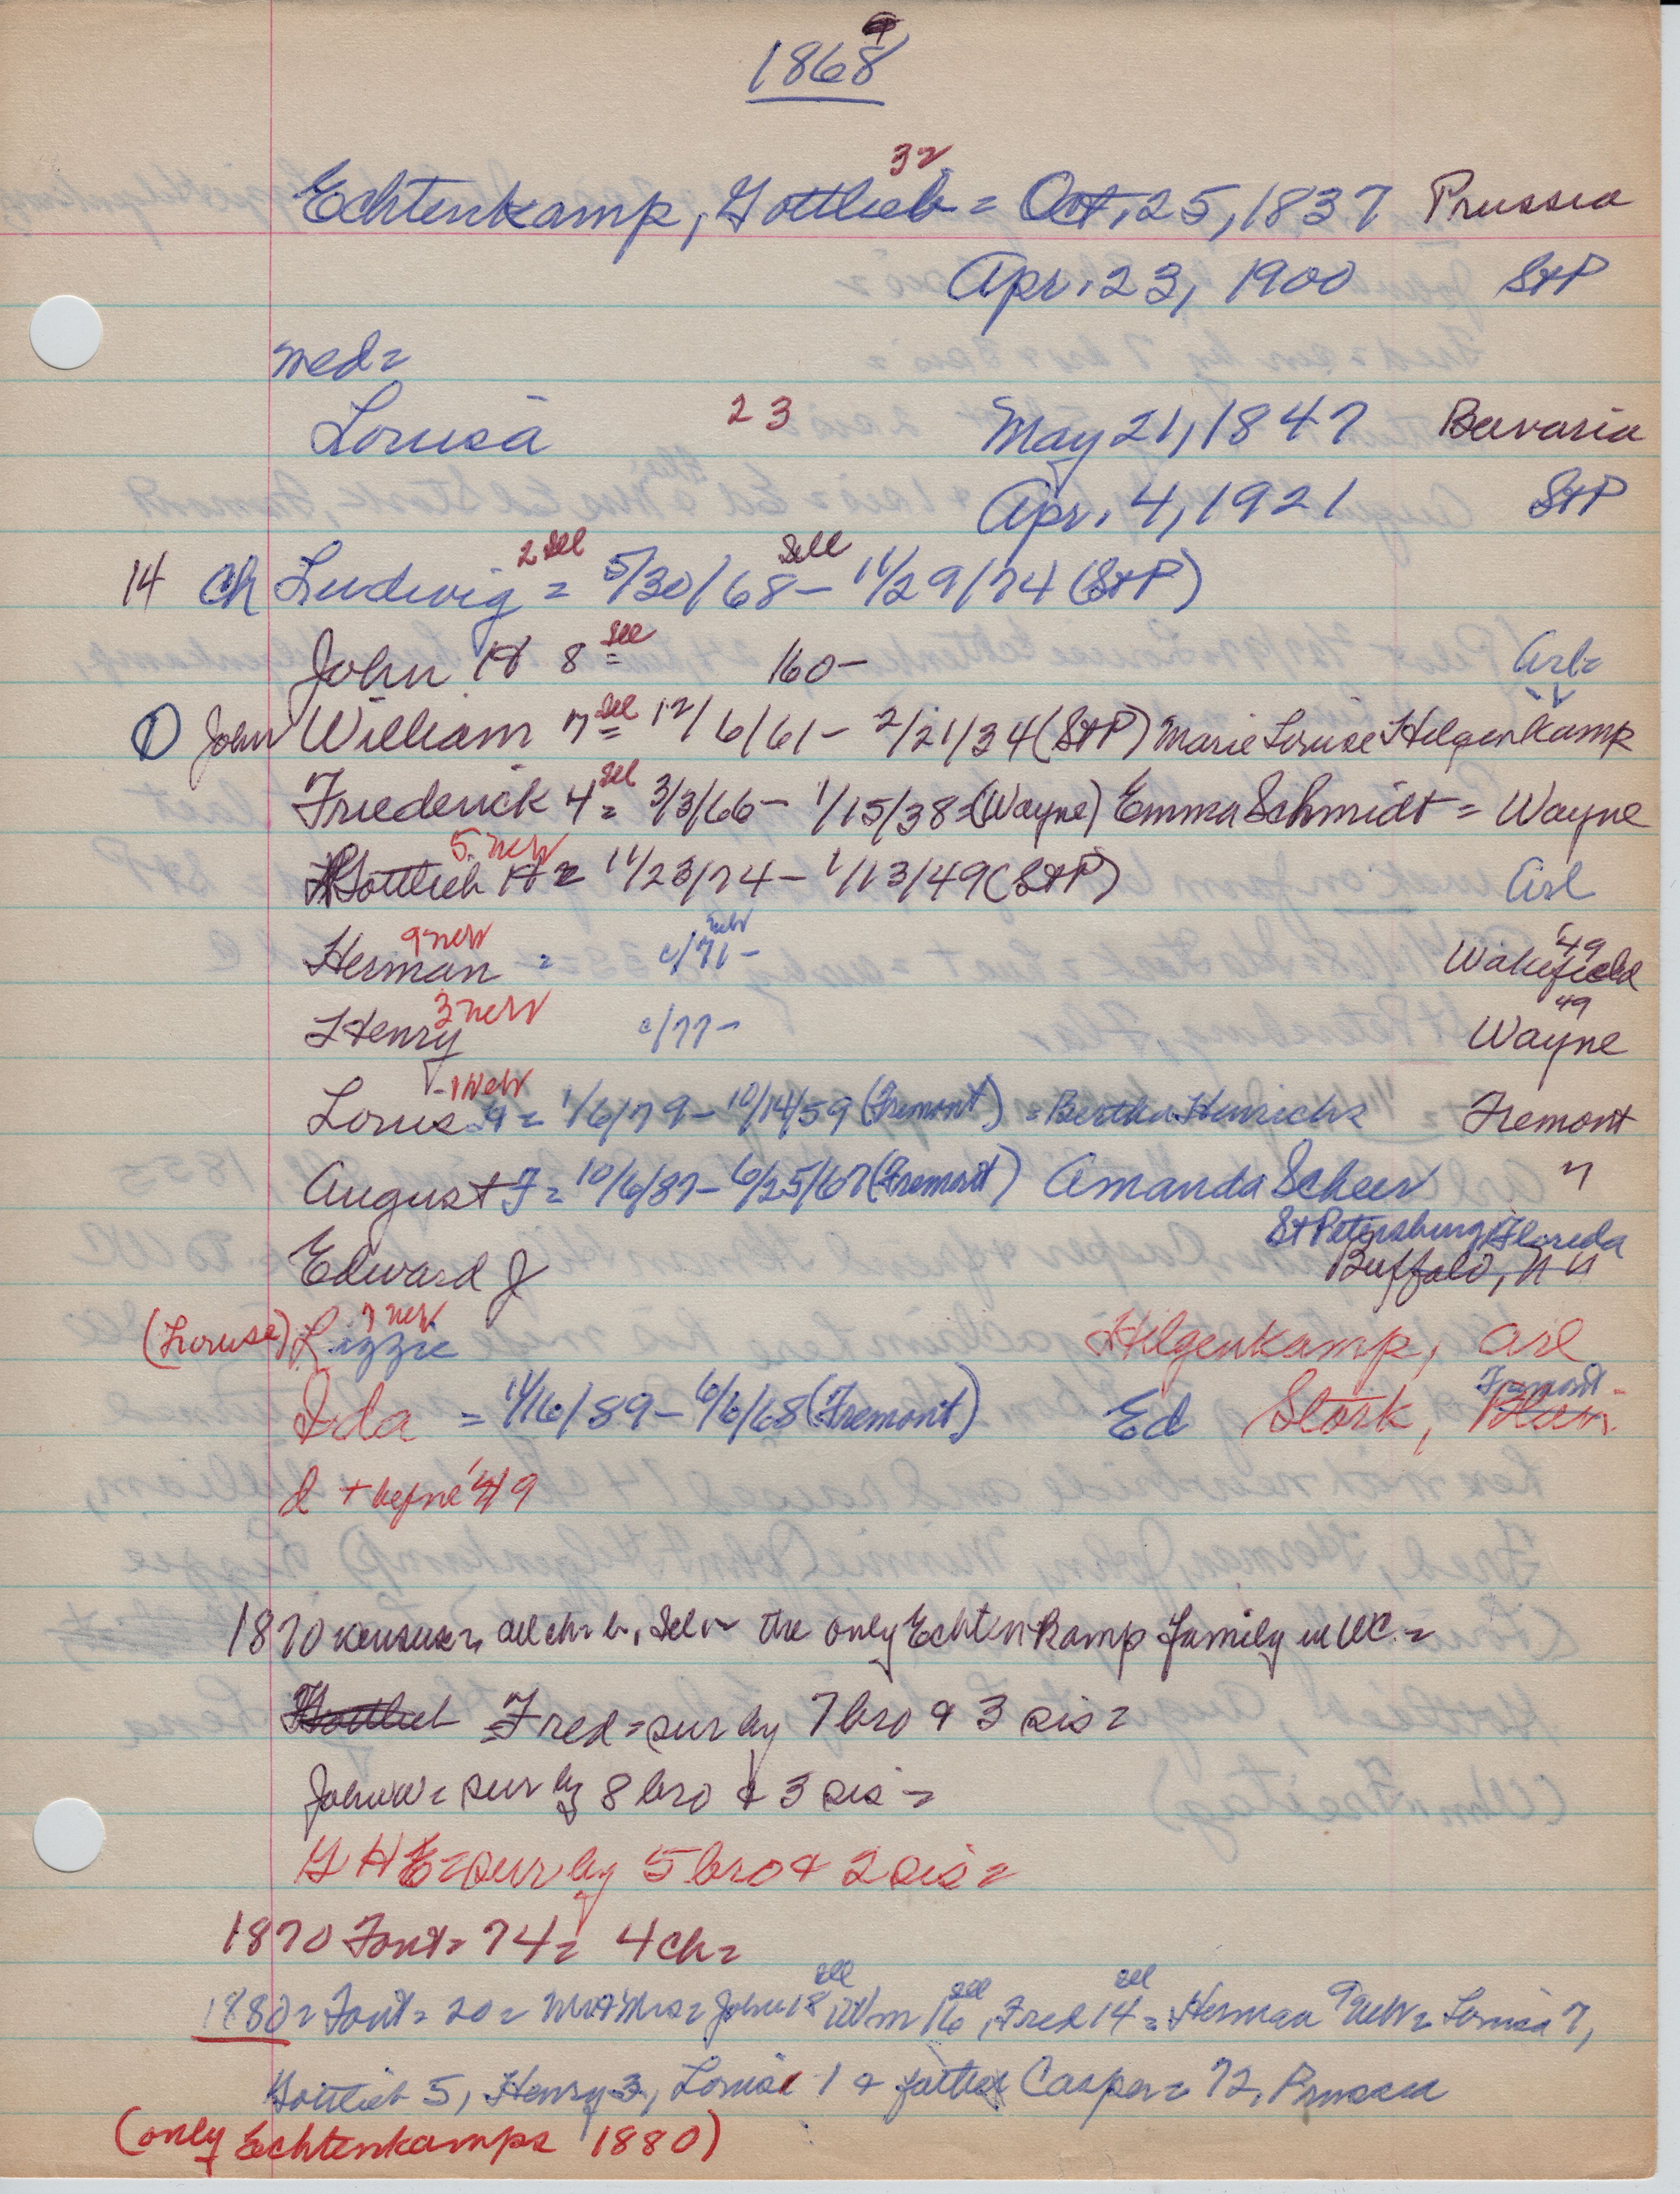 1868 9
32
Echtenkamp, Gottlieb = Oct. 25, 1837 Prussia
Apr. 23, 1900 StP
med=
Louisa 23 May 21, 1847 Bavaria
Apr. 4, 1921 StP
2 Ill Ill
14 ch Ludwig = 5/30/68 – 11/29/74 (StP)
John H 8 Ill = 160 – Arl=
① John William 7 Ill = 12/6/61 – 2/21/34 (StP) Marie Louise Hilgenkamp
Friederick 4 Ill = 3/3/66 – 1/15/38 = (Wayne) Emma Schmidt = Wayne
5 neb
Gottlieb H = 11/23/74 – 1/13/49 (StP) Arl
9 neb neb '49
Herman = c/71 – Wakefield
3 neb 49
Henry c/77 – Wayne
- 1 neb
Louis = 1/6/79 – 10/14/59 (Fremont) = Bertha Hinrichs Fremont
August F = 10/6/87 – 6/25/67 (Fremont) Amanda Scheer "
St Petersburg, Florida
Edward J Buffalo, N Y
7 neb
(Louise) Lizzie Hilgenkamp, Arl
Fremont
Ida = 11/16/89 – 6/6/68 (Fremont) Ed Stork, Blair
d + before '49
1870 census =, all ch = b, Ill = the only Echtenkamp family in WC. =
Gottlieb Fred = sur by 7 bro & 3 sis =
John W = sur by 8 bro & 3 sis =
G H E = sur by 5 bro & 2 sis =
1870 Font = 74 = 4 ch =
Ill Ill Ill
1880 = Font = 20 = Mr & Mrs = John 18, Wm 16, Fred 14 = Herman 9 neb = Louisa 7,
Gottlieb 5, Henry 3, Louis 1 & father Casper = 72, Prussia
(only Echtenkamps 1880)